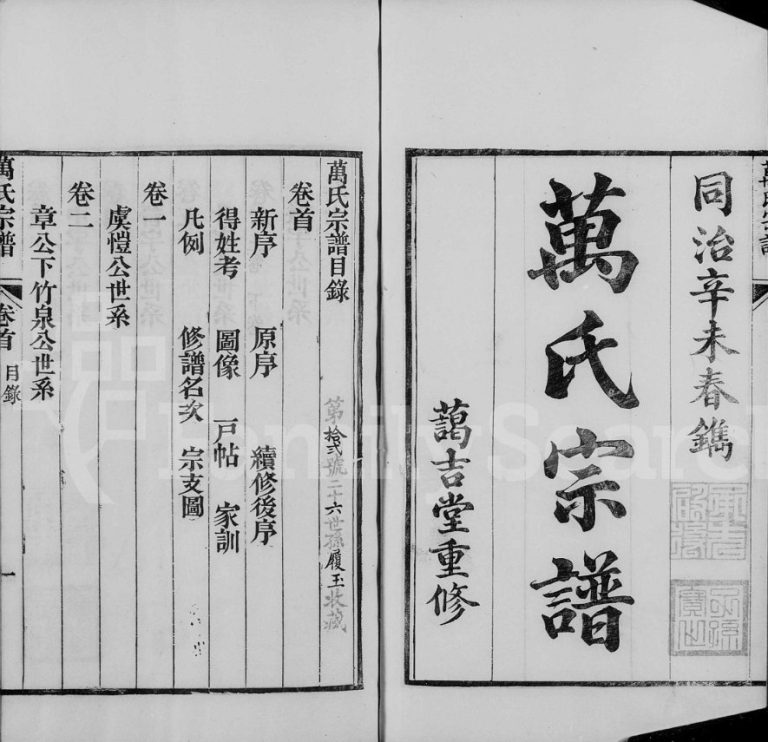 同治辛未春鐫
萬氏宗譜
藹吉堂重修
萬氏宗譜目錄
第拾弍號二十六世孫履玉收藏
卷首
新序 原序 續修後序
得姓考 圖像 戸帖 家訓
凡例 修譜名次 宗支圖
卷一
虞愷公世系
卷二
章公下竹泉公世系
萬氏宗譜 卷首 目錄 一
FamilySearch